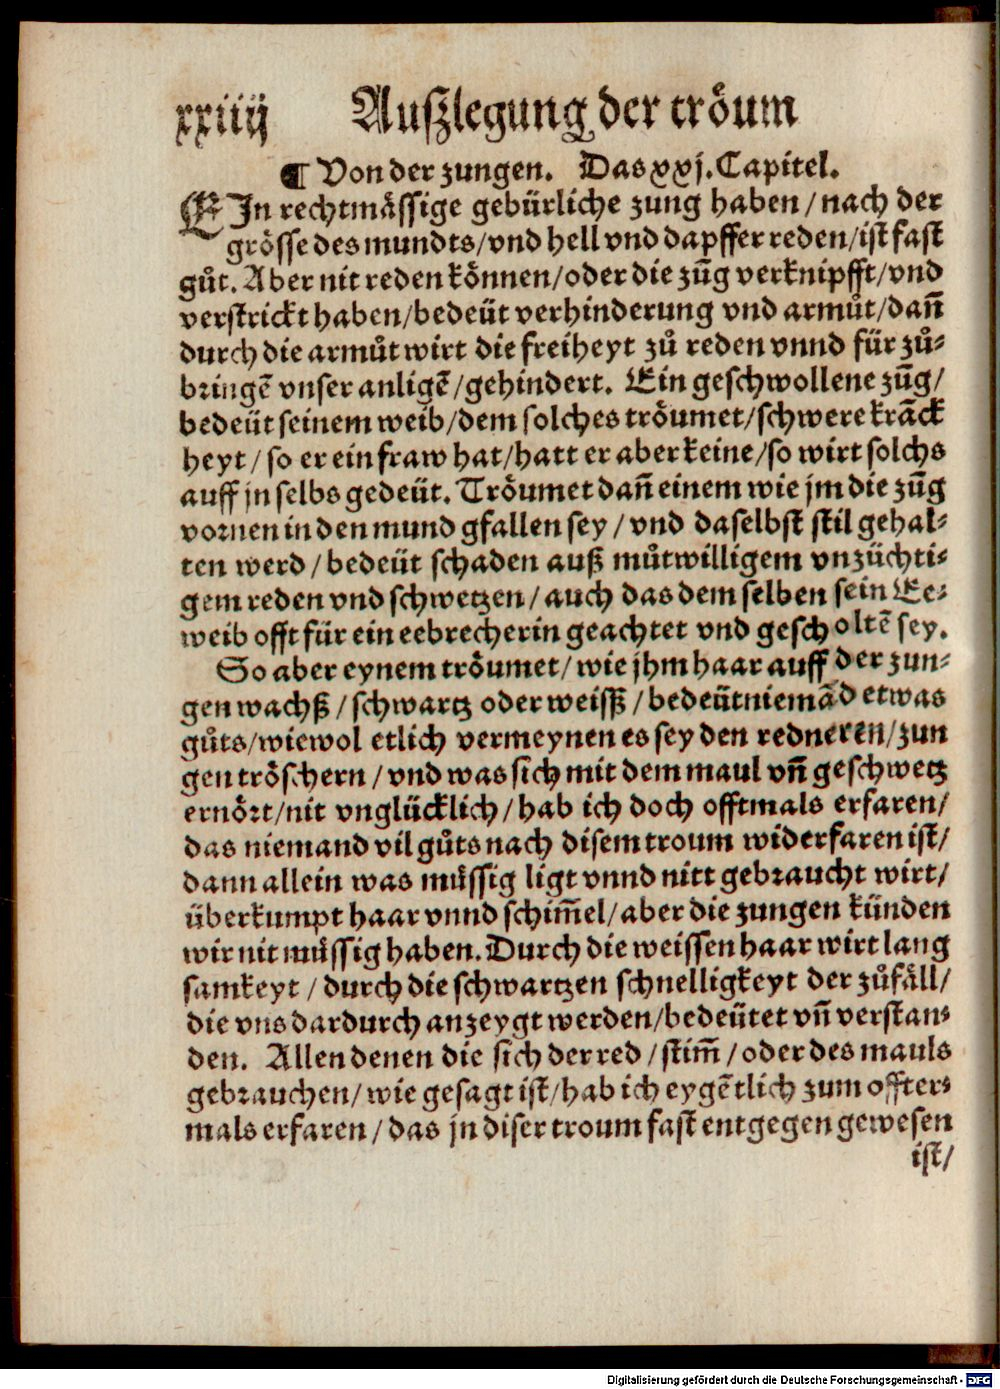 xxiiij Auſzlegung der trőum
¶ Von der zungen. Das xxj. Capitel.
EIn rechtmåſſige gebürliche zung haben / nach der
gröſſe des mundts / vnd hell vnd dapffer reden / iſt faſt
gůt. Aber nit reden können / oder die zūg verknipfft / vnd
verſtrickt haben / bedeüt verhinderung vnd armůt / dañ
durch die armůt wirt die freiheyt zů reden vnnd für zů⸗
bringē vnſer anligē / gehindert. Ein geſchwollene zūg /
bedeüt ſeinem weib / dem ſolches trőumet / ſchwere krāck
heyt / ſo er ein fraw hat / hatt er aber keine / ſo wirt ſolchs
auff jn ſelbs gedeüt. Trőumet dañ einem wie jm die zūg
vornen in den mund gfallen ſey / vnd daſelbſt ſtil gehal⸗
ten werd / bedeüt ſchaden auß můtwilligem vnzüchti⸗
gem reden vnd ſchwetzen / auch das dem ſelben ſein Ee⸗
weib offt für ein eebrecherin geachtet vnd geſcholtē ſey.
So aber eynem trőumet / wie jhm haar auff der zun⸗
gen wachß / ſchwartz oder weiſſz / bedeüt niemād etwas
gůts / wiewol etlich vermeynen es ſey den redneren / zun
gentröſchern / vnd was ſich mit dem maul vñ geſchwetz
ernört / nit vnglücklich / hab ich doch offtmals erfaren /
das niemand vil gůts nach diſem troum widerfaren iſt /
dann allein was můſſig ligt vnnd nitt gebraucht wirt /
überkumpt haar vnnd ſchim̃el / aber die zungen künden
wir nit můſſig haben. Durch die weiſſen haar wirt lang
ſamkeyt / durch die ſchwartzen ſchnelligkeyt der zůfäll /
die vns dardurch anzeygt werden / bedeütet vñ verſtan⸗
den. Allen denen die ſich der red / ſtim̃ / oder des mauls
gebrauchen / wie geſagt iſt / hab ich eygētlich zum offter⸗
mals erfaren / das jn diſer troum faſt entgegen geweſen
iſt /
Digitalisierung gefördert durch die Deutsche Forschungsgemeinschaft - DFG